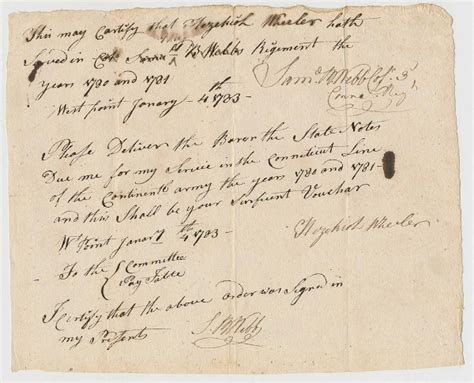 This may Certify that Hezekiah Wheeler hath
Served in Col. Saml B Webbs Regiment the
years 1780 and 1781
West point Janary 4th 1783
Saml B Webb Col. 3d
Connt Regt
Please Deliver the Baror the State Notes
Due me for my Service in the Conneticut Line
of the Continentl army the years 1780 and 1781
and this Shall be your Surfient Vouchar
Wt Point Janary 4th 1783
Hezekiah Wheeler
To the Committee
Pay Table
I Certify that the above order was Signed in
my Presents
S. B Webb